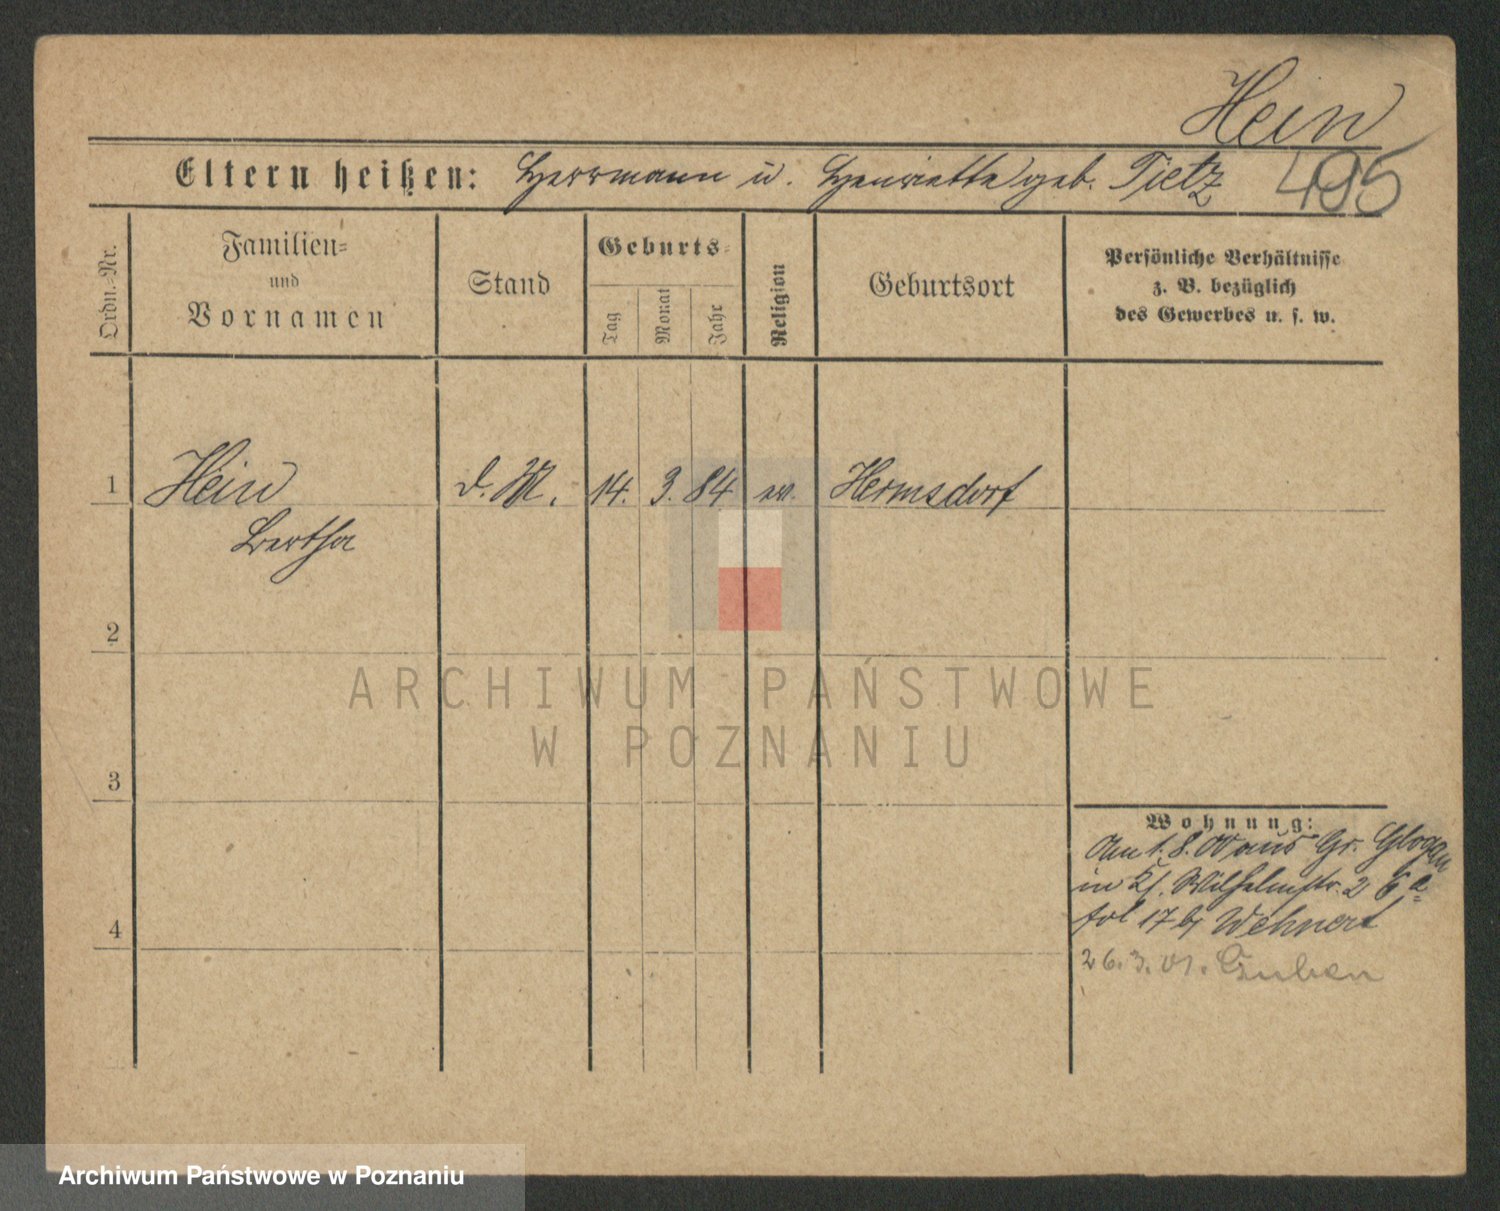 Hein
495
Eltern heißen: Herrmann u. Henriette geb. Tietz
Ordn.-Nr.
Familien-
und
Vornamen
Stand
Geburts-
Tag
Monat
Jahr
Religion
Geburtsort
Persönliche Verhältnisse
z. B. bezüglich
des Gewerbes u. s. w.
1 Hein d. M. 14. 3. 84 ev. Hermsdorf
Bertha
2
ARCHIWUM PAŃSTWOWE
W POZNANIU
3
Wohnung:
Am 1. 8. 00 aus Gr. Glogau
in Wilhelmstr. 26a
fol 17 b/ Wehnert
4
26. 3. 01. Guben
Archiwum Państwowe w Poznaniu